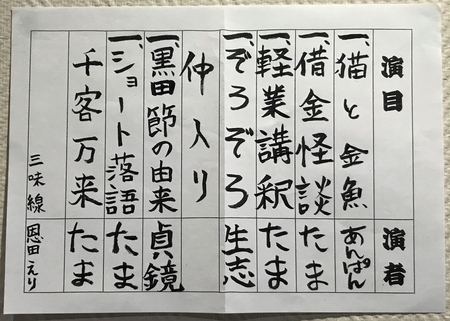 演目 演者
一、猫と金魚 あんぱん
一、借金怪談 たま
一、軽業講釈 たま
一、ぞろぞろ 生志
仲入り
一、黒田節の由来 貞鏡
一、ショート落語 たま
千客万来 たま
三味線 恩田えり